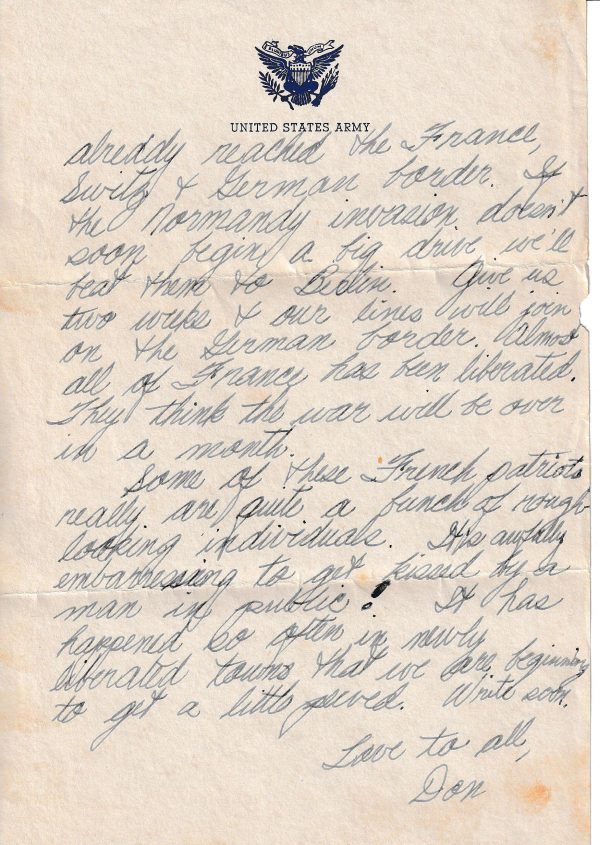 UNITED STATES ARMY
alreddy reached the France,
Switz & German border. If
the Normandy invasion doesn't
soon begin a big drive we'll
beat them to Berlin. Give us
two weeks & our lines will join
on the German border. Almost
all of France has been liberated.
They think the war will be over
in a month.
Some of these French patriots
really are quite a bunch of rough-
looking individuals. It's awfully
embarressing to get kissed by a
man in public! It has
happened so often in newly
liberated towns that we are beginning
to get a little peeved. Write soon.
Love to all,
Don